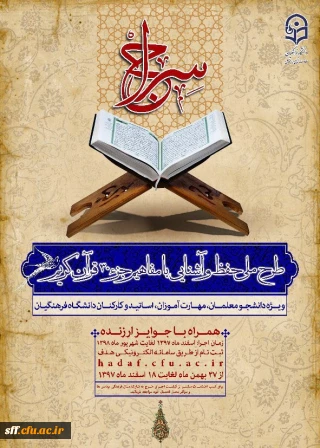 سراج
طرح ملی حفظ و آشنایی با مفاهیم جزء ۳۰ قرآن کریم
ویژه دانشجو معلمان، مهارت آموزان، اساتید و کارکنان دانشگاه فرهنگیان
همراه با جوایز ارزنده
زمان اجرا: اسفند ماه ۱۳۹۷ لغایت شهریور ماه ۱۳۹۸
ثبت نام از طریق سامانه الکترونیکی هدف
hadaf.cfu.ac.ir
از ۲۷ بهمن ماه لغایت ۱۸ اسفند ماه ۱۳۹۷
sff.cfu.ac.ir